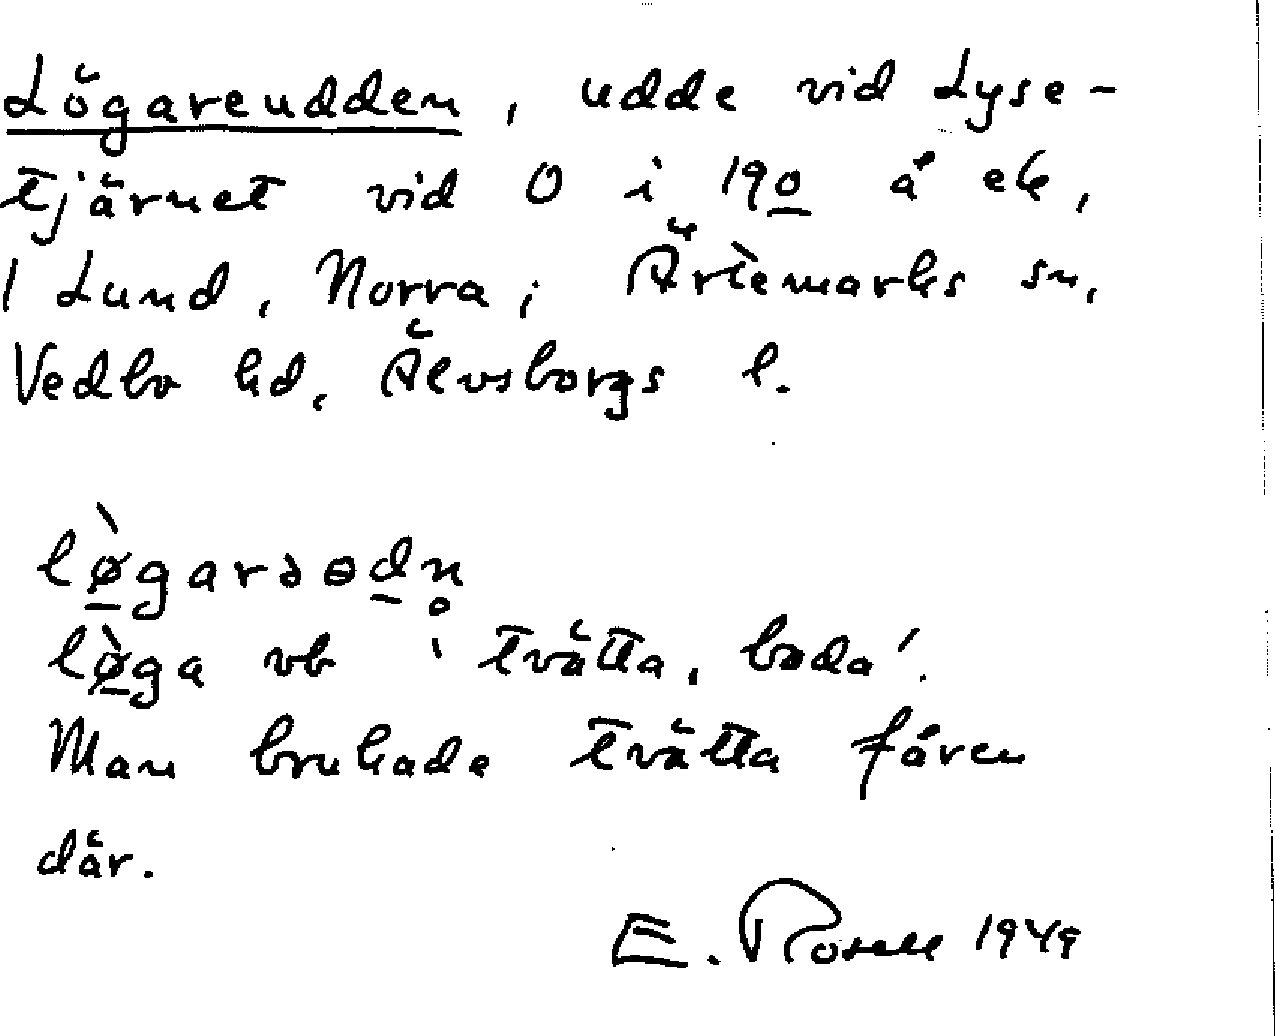 Lögareudden, udde vid Lyse-
tjärnet vid O i 190 å ek,
1 Lund, Norra, Ärtemarks sn,
Vedbo hd, Älvsborgs l.
lø̀garəɵdn̥
lø̀ga vb 'tvätta, bada'.
Man brukade tvätta fåren
där.
E. Rosell 1949